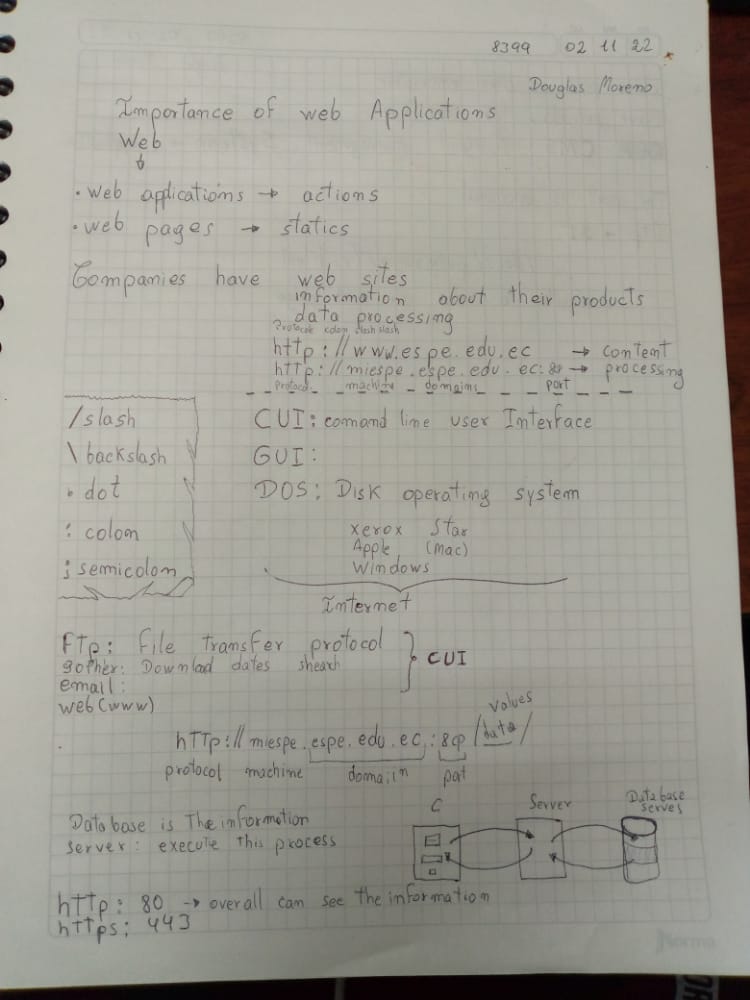 8399 02 11 22
Douglas Moreno
Importance of web Applications
Web
• web applications → actions
• web pages → statics
Companies have web sites
information about their products
data processing
Protocole colon slash slash
http://www.espe.edu.ec → content
http://miespe.espe.edu.ec:80 → processing
Protocol machine domains port
/slash
\ backslash
. dot
: colon
; semicolon
CUI: comand line user Interface
GUI:
DOS: Disk operating system
xerox Star
Apple (Mac)
Windows
Internet
FTp: File transfer protocol
gopher: Download dates shearh
email:
web (www)
CUI
values
hTTp://miespe.espe.edu.ec:80/data/
protocol machine domain pat
Database is The information
server: execute this process
C Server Database
serves
http: 80 → overall can see the information
https: 443
Norma